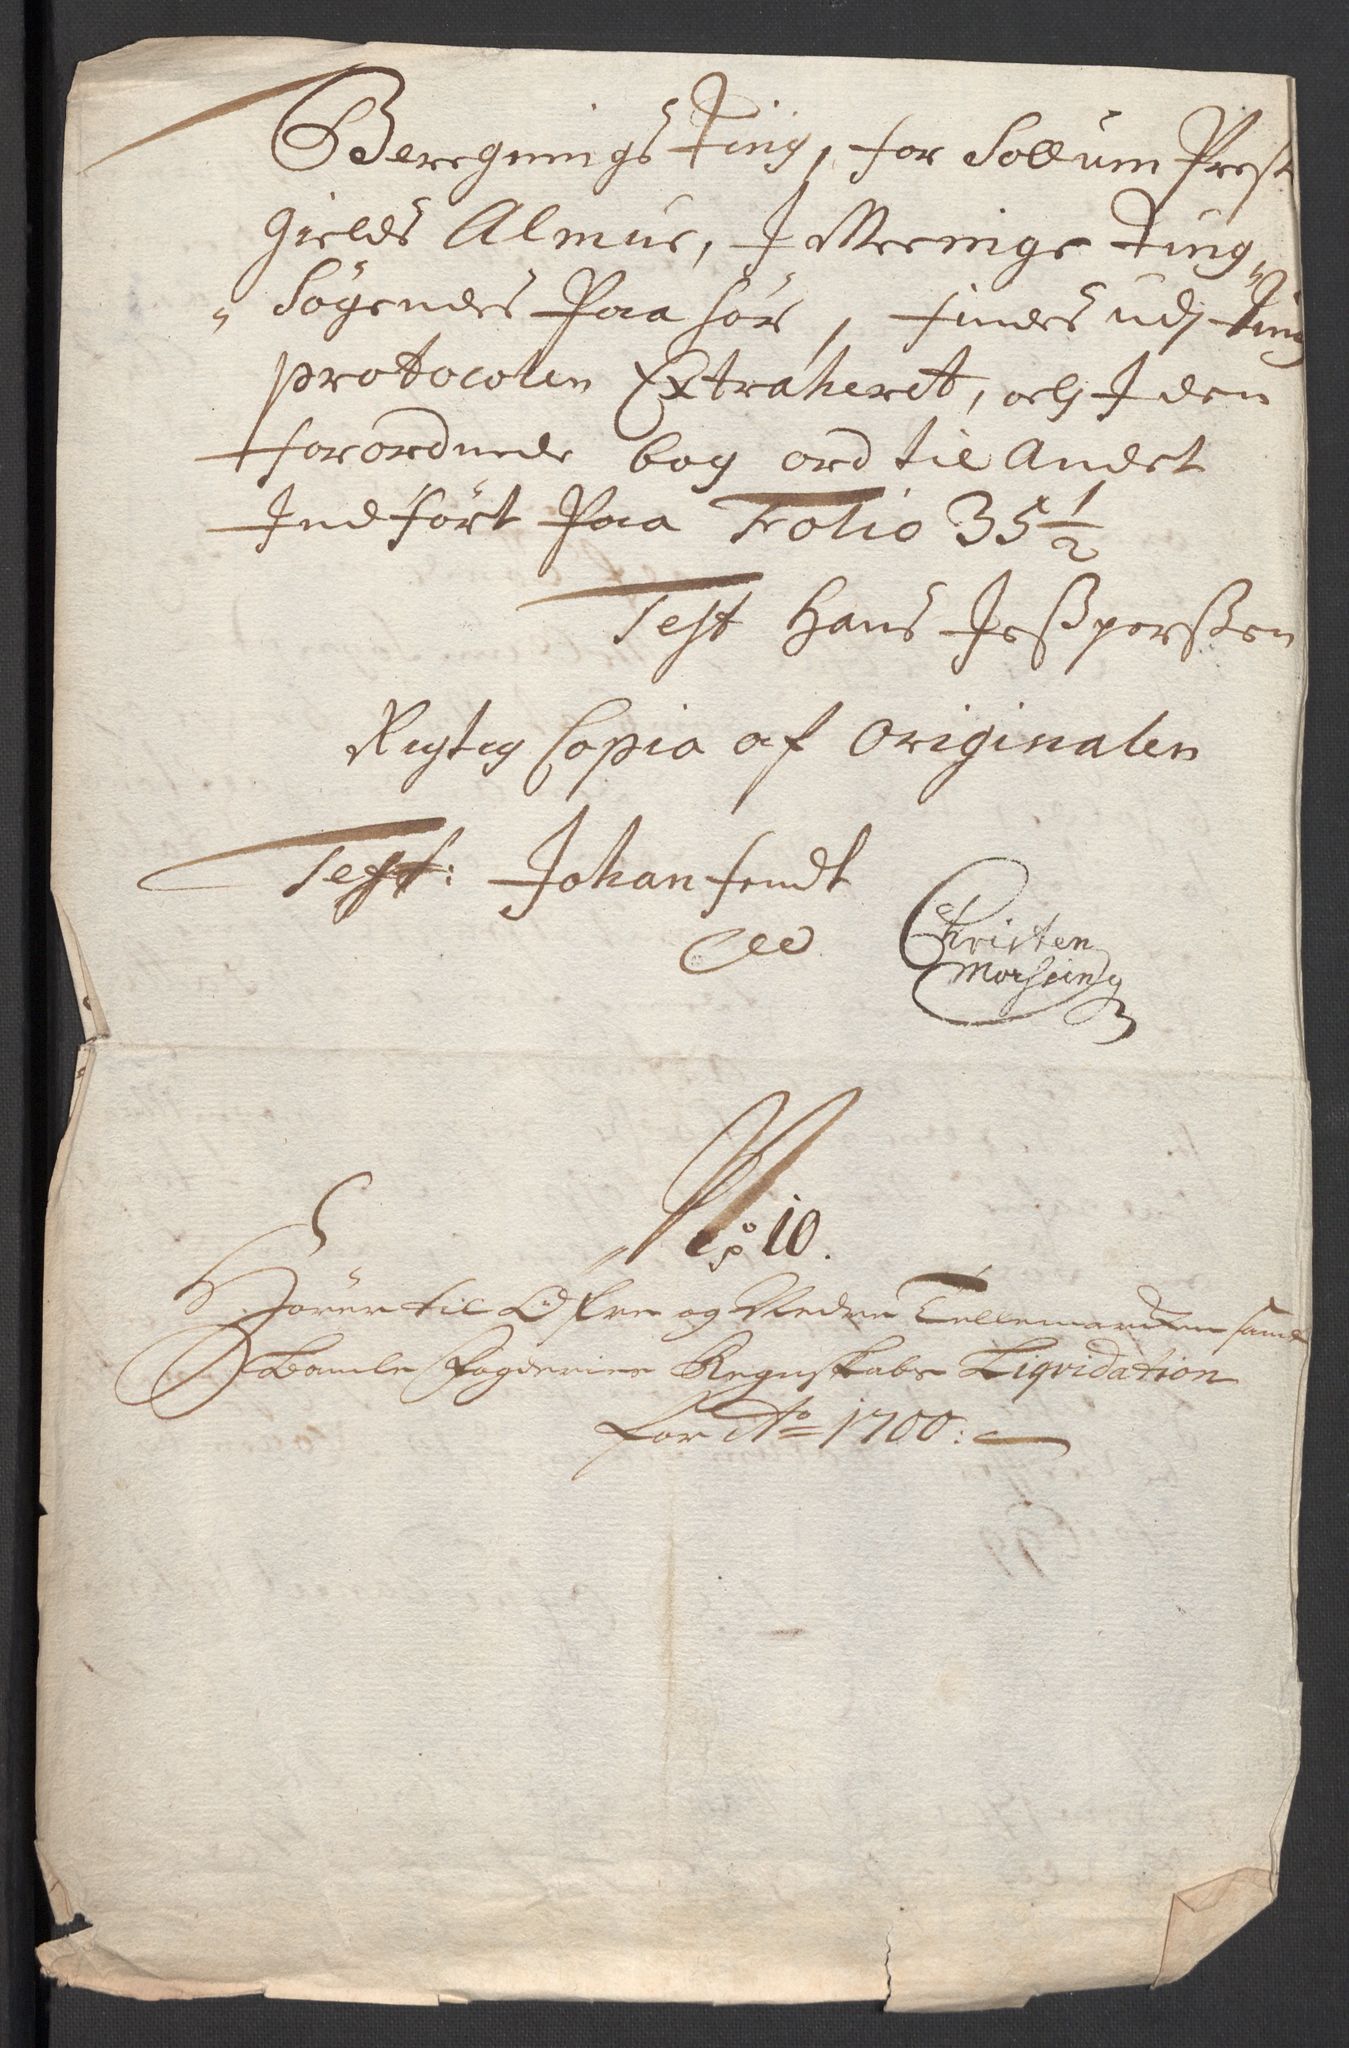 Beregnings Ting, for Sollum Prest
Gields Almue, J Meenige Ting
Søgendes Paa hør, findes udj Ting
protocolen Extraheret, och J den
forordnede bog ord til Andet
Jndført Paa Folio 35 1/2
Test Hans Jeßperßen
Rigtig Copia af Originalen
Test: Johan Fendt
Christen
Morsing
No 10.
Hører til Øfre og Nedre Tellemarcken samt
Bamle Fogderies Regnskabs Liqvidation
for Ao 1700: